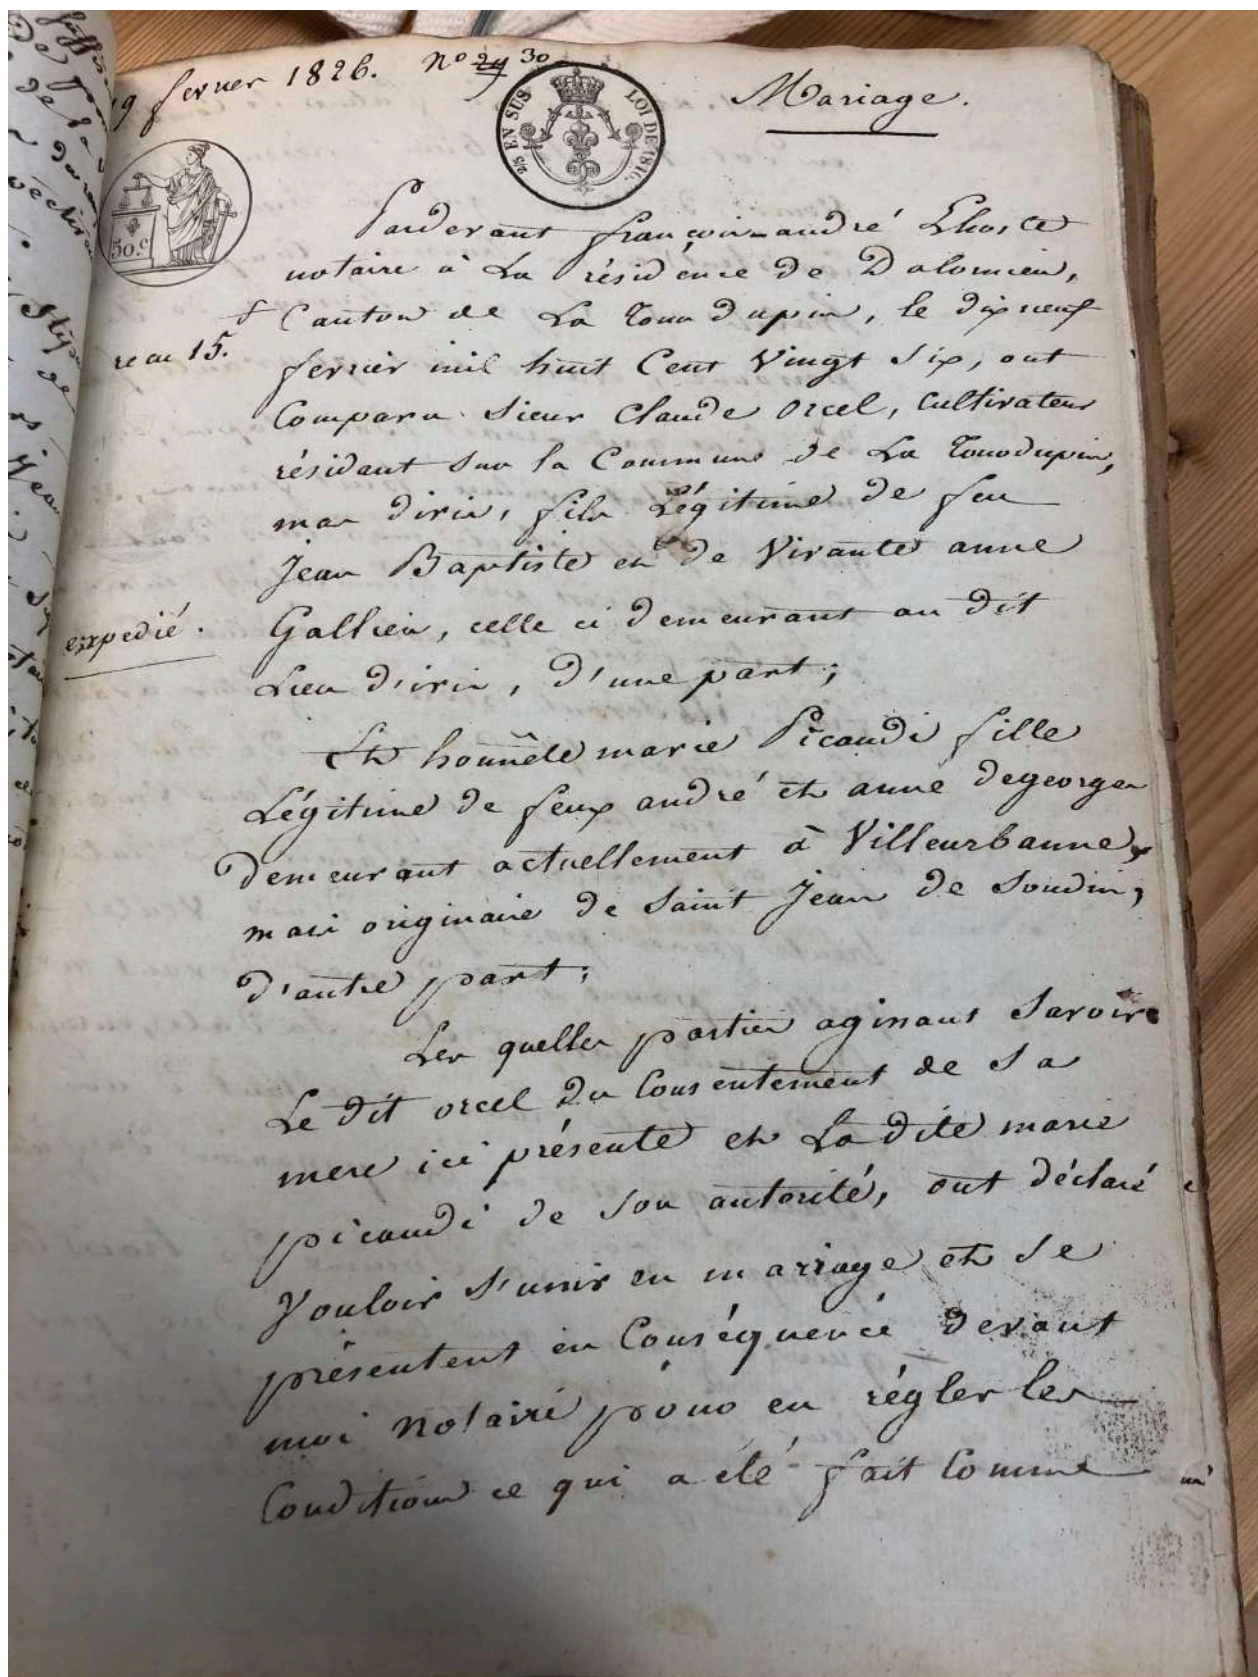 19 fevrier 1826. No 29 30
Mariage.
2/5 EN SUS LOI DE 1816.
50.c
Pardevant françois-andré Lhoste
notaire à La résidence de Dolomieu,
Canton de La tour Dupin, le dix neuf
re au 15.
fevrier mil huit Cent Vingt Six, ont
Comparu Sieur Claude Orcel, Cultivateur
résidant Sur la Commune de La tourdupin,
mas d'irin, fils Légitime de feu
Jean Baptiste et de Vivante anne
expedié.
Gallien, celle ci demeurant au dit
Lieu d'irin, D'une part;
Et honnête marie Picaudi fille
Légitime de feux andré et anne degeorges
Demeurant actuellement à Villeurbanne,
mais originaire de Saint Jean de Soudin;
D'autre part;
Les quelles parties agissant Savoir
Le Dit orcel Du Consentement de Sa
mere ici présente et La dite marie
picaudi de Son autorité, ont déclaré
Vouloir s'unir en mariage et Se
présentent en Conséquence devant
moi Notaire pour en régler les
Conditions ce qui a été fait Comme